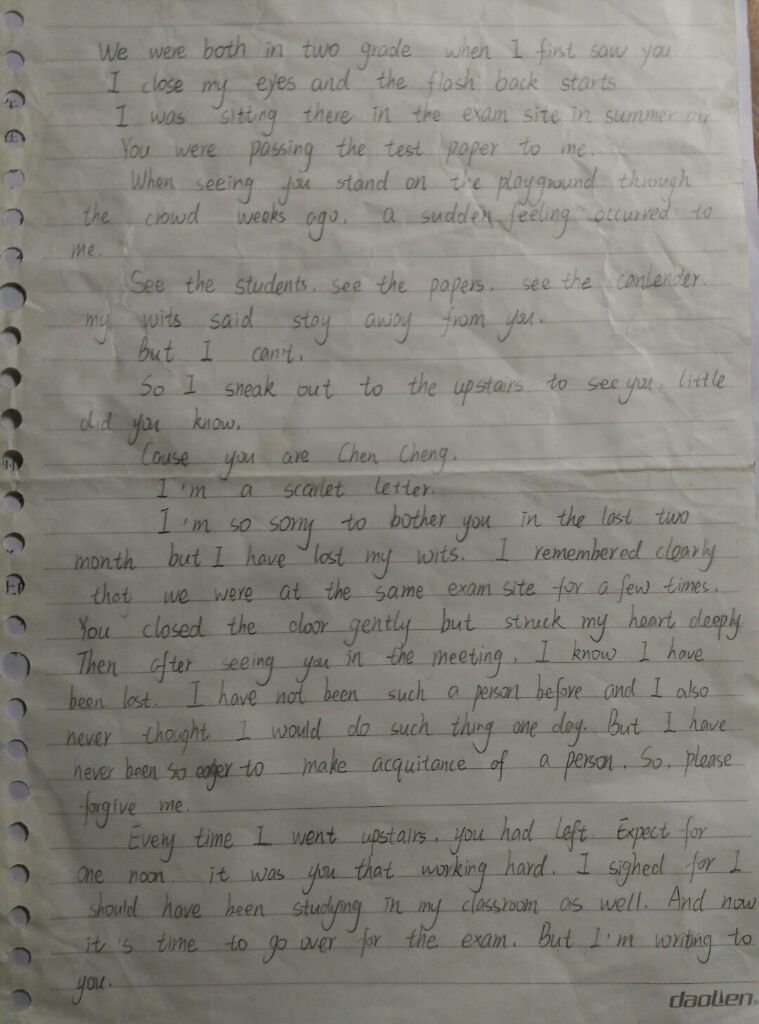 We were both in two grade when I first saw you
I close my eyes and the flash back starts
I was sitting there in the exam site in summer air
You were passing the test paper to me.
When seeing you stand on the playground through
the crowd weeks ago, a sudden feeling occurred to
me.
See the students, see the papers, see the contender.
my wits said stay away from you.
But I can't.
So I sneak out to the upstairs to see you, little
did you know.
Cause you are Chen Cheng.
I'm a scarlet letter.
I'm so sorry to bother you in the last two
month but I have lost my wits. I remembered clearly
that we were at the same exam site for a few times.
You closed the door gently but struck my heart deeply
Then after seeing you in the meeting, I know I have
been lost. I have not been such a person before and I also
never thought I would do such thing one day. But I have
never been so eager to make acquitance of a person. So, please
forgive me.
Every time I went upstairs, you had left. Expect for
one noon it was you that working hard. I sighed for I
should have been studying in my classroom as well. And now
it's time to go over for the exam. But I'm writing to
you.